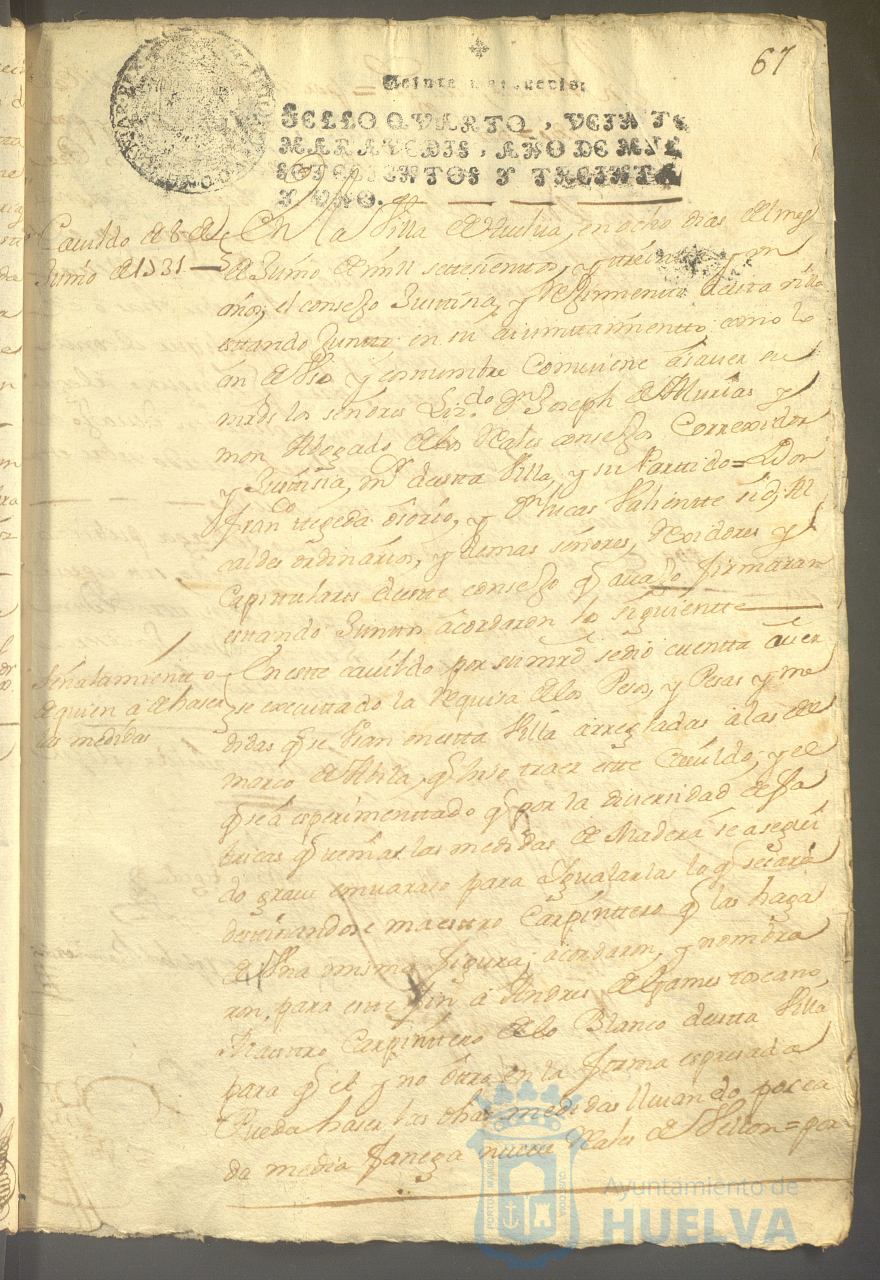 67
Veinte maravedis
SELLO QVARTO, VEINTE
MARAVEDIS, AÑO DE MIL
SETECIENTOS Y TREINTA
Y UNO.
Cavildo de 8 de
Junio de 1731
En la Villa de Huelva, en ocho dias del mes
de Junio de mil settesientos, y treinta y un
años, el consejo Justisia, y Regimiento desta villa
estando Juntos en su aiuntamientto como lo
an de Uso y costumbre Combiene a saver su
mrd los señores Liz.do Dn Joseph de Asturias y
mon Abogado de los Reales consejos Correxidor
y Justisia mr desta Villa, y su Partido = Don
Fran.co tegeda osorio, y Dn lucas Valientte Al
caldes ordinarios, y demas señores, Rexidores y
Capitulares deste consejo q avajo firmaran
estando Juntos acordaron lo siguientte
Señalamiento
de quien a de haser
las medidas
En este cavildo por su mrd se dio cuentta aver
se executtado la Requisa de los Pesos, y Pesas y me
didas q se Usan en estta Villa arregladas a las del
marco de Abila, q hiso traer este Cavildo, y el
q se a esperimenttado q por la diversidad de fa
bricas q tenian las medidas de Madera se a segui
do grave embaraso para Igualarlas lo q sesara
destinandose maestro Carpinttero q las haga
de Una misma figura; acordaron, y nombra
ron, para este fin a Andres de Games toscano,
Maestro Carpinttero de lo Blanco desta Villa
para q el y no otro en la forma espresada
Pueda haser las dhas medidas llevando por ca
da media fanega nueve Reales de Vellon = por
Ayuntamiento de
HUELVA